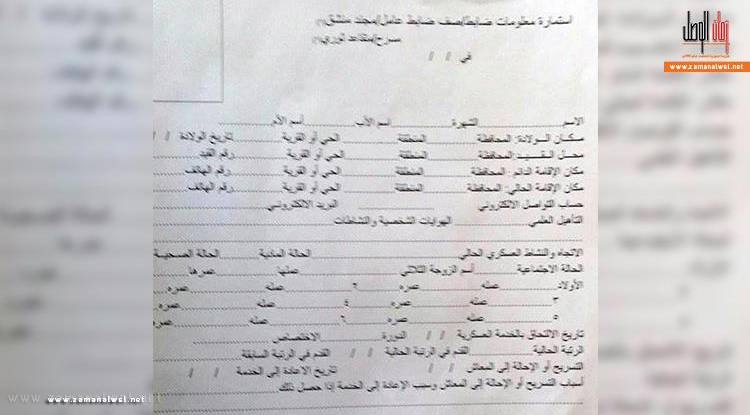 زمان الوصل
www.zamanalwsl.net
أستمارة معلومات ضابط/صف ضابط عامل/مجند منشق(*)
مسرح/متقاعد ثوري(*)
في / /
الاسم................الشهرة................اسم الأب................أسم الأم................
مكان الولادة: المحافظة................المنطقة................الحي أو القرية................تاريخ الولادة / /
محل القيد: المحافظة................المنطقة................الحي أو القرية................رقم القيد................
مكان الإقامة الدائم: المحافظة................المنطقة................الحي أو القرية................رقم الهاتف................
مكان الإقامة الحالي: المحافظة................المنطقة................الحي أو القرية................رقم الهاتف................
حساب التواصل الالكتروني................البريد الالكتروني................
التأهيل العلمي................الهوايات الشخصية والنشاطات................
الاتجاه والنشاط العسكري الحالي................الحالة المادية................الحالة الصحية
الحالة الاجتماعية................أسم الزوجة الثلاثي................عملها................عمرها................
الأولاد................عمله................عمره................٢................عمله................عمره
٣................عمله................عمره................٤................عمله................عمره
٥................عمله................عمره................٦................عمله................عمره
تاريخ الالتحاق بالخدمة العسكرية / / الدورة................الاختصاص................
الرتبة الحالية................القدم في الرتبة الحالية / / القدم في الرتبة السابقة
التسريح أو الإحالة إلى المعاش / / تاريخ الإعادة إلى الخدمة / /
أسباب التسريح أو الإحالة إلى المعاش وسبب الإعادة إلى الخدمة إذا حصل ذلك................
www.zamanalwsl.net